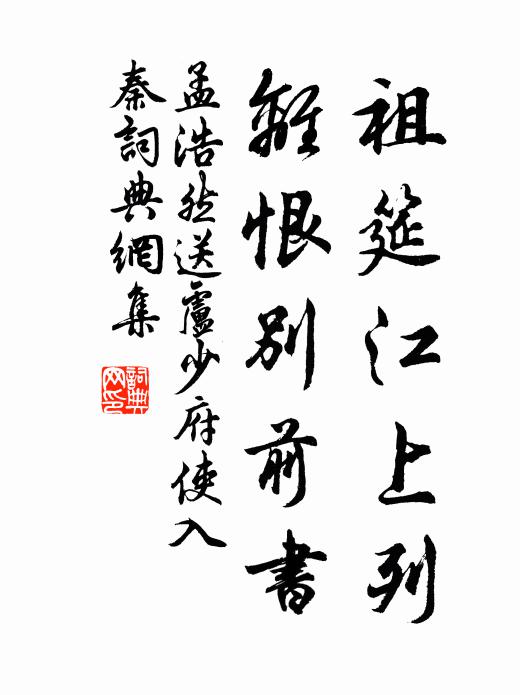 祖筵江上列
離恨別前書
孟浩然送盧少府使入
秦詞典網集
詞典
网印